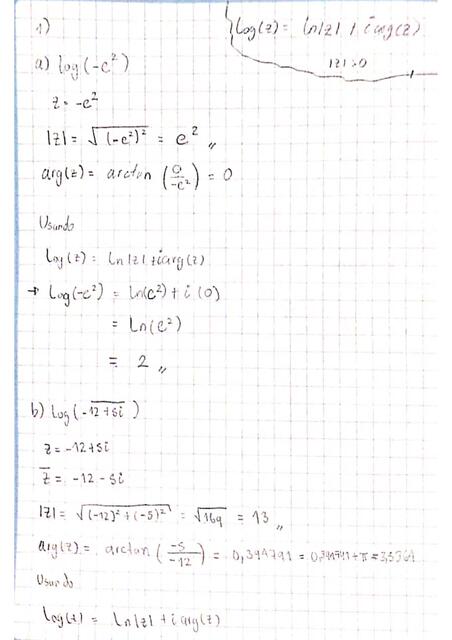 1)
Log(z) = ln|z| + i arg(z)
|z| > 0
a) log(-e²)
z = -e²
|z| = √(-e²)² = e² ,,
arg(z) = arctan (0/-e²) = 0
Usando
Log(z) = Ln|z| + i arg(z)
→ Log(-e²) = ln(e²) + i (0)
= Ln(e²)
= 2 ,,
b) Log(-12+5i)
z = -12+5i
z̅ = -12-5i
|z| = √(-12)² + (-5)² = √169 = 13 ,,
arg(z) = arctan (-5/-12) = 0,394791 = 0,394791+π = 3,5364
Usando
Log(z) = Ln|z| + i arg(z)